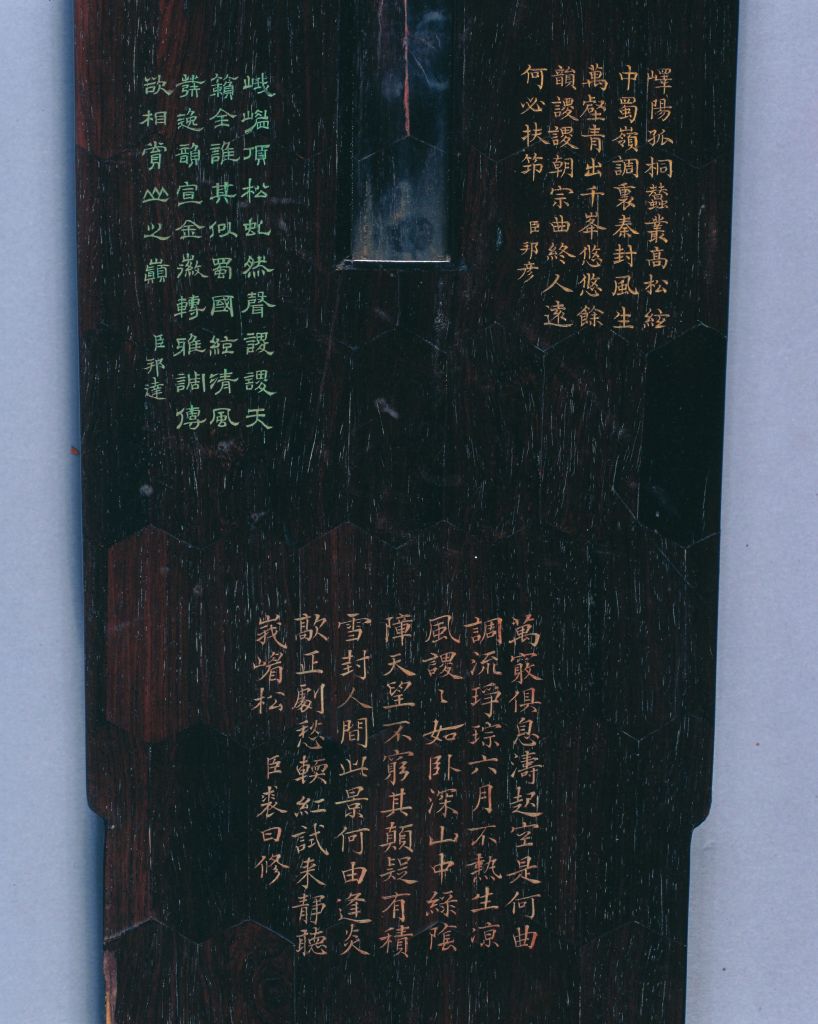 嶧陽孤桐蠶叢高松絃
中蜀嶺調裏秦封風生
萬壑青出千峯悠悠餘
韻謖謖朝宗曲終人遠
何必扶筇 臣邦彥
峨嵋頂松虬然聲謖謖天
籟全誰其似蜀國絃清風
發逸韻宣金徽轉雅調傳
欲相賞山之巔 臣邦達
萬竅俱息濤起空是何曲
調流琤琮六月不熱生涼
風謖〻如臥深山中綠陰
障天望不窮其顛疑有積
雪封人間此景何由逢炎
歊正劇愁輭紅試来靜聽
峩嵋松 臣裘曰修